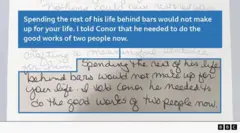 Spending the rest of his life behind bars would not make
up for your life. I told Conor that he needed to do the
good works of two people now.
Spending the rest of his life
behind bars would not make up for
your life. I told Conor he needed to
do the good works of two people now.
BBC